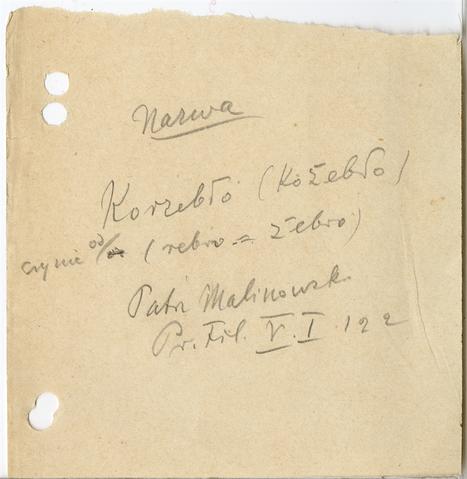 Narwa
Korzebło (Kożebło)
czy nie od/ (rebro = żebro)
Patrz Malinowsk.
Pr. Fil. V. I. 122